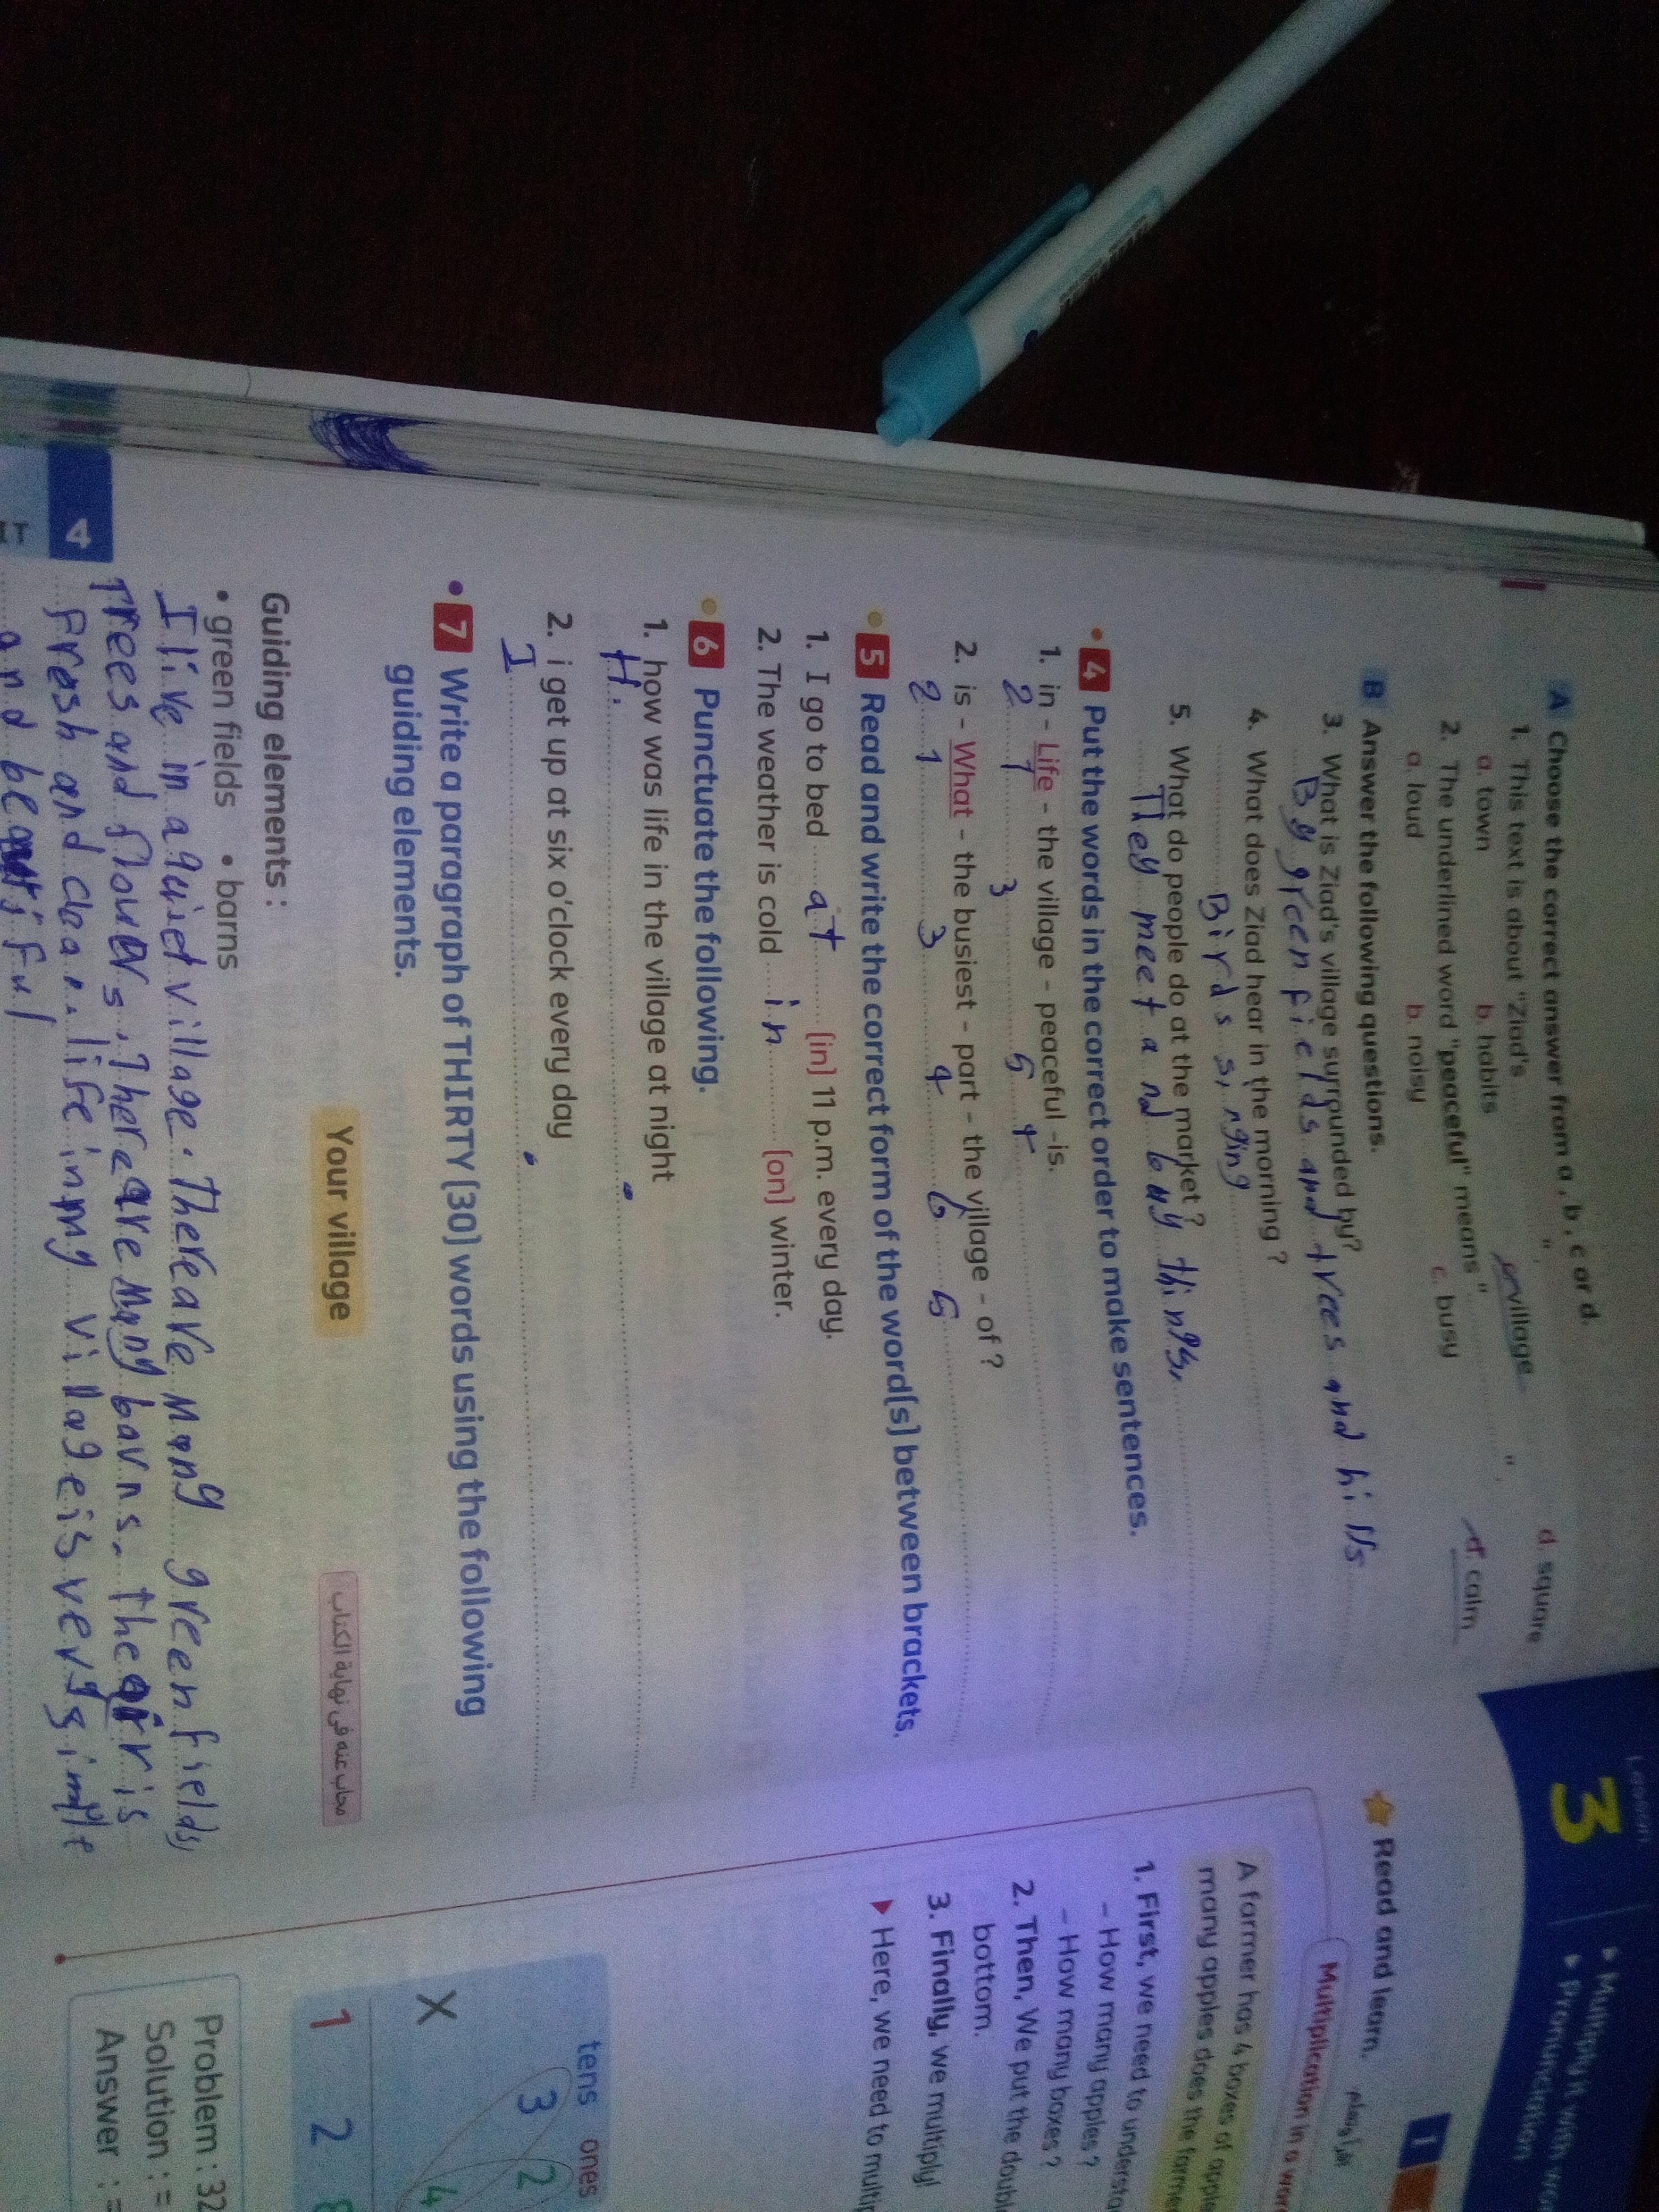 A Choose the correct answer from a, b, c or d.
1. This text is about "Ziad's ............ ".
a. town b. habits c. village d. square
2. The underlined word "peaceful" means " ............ ".
a. loud b. noisy c. busy d. calm
B Answer the following questions.
3. What is Ziad's village surrounded by?
By green fields and trees and hills
4. What does Ziad hear in the morning?
Birds singing
5. What do people do at the market?
They meet and buy things.
4 Put the words in the correct order to make sentences.
1. in - Life - the village - peaceful -is.
2 1 3 5 4
2. is - What - the busiest - part - the village - of ?
2 1 3 4 6 5
5 Read and write the correct form of the word(s) between brackets.
1. I go to bed at (in) 11 p.m. every day.
2. The weather is cold in (on) winter.
6 Punctuate the following.
1. how was life in the village at night
H. .
2. i get up at six o'clock every day
I .
7 Write a paragraph of THIRTY (30) words using the following
guiding elements.
Your village
مجاب عنه في نهاية الكتاب
Guiding elements :
• green fields • barns
I live in a quiet village. There are many green fields,
Trees and flowers. There are many barns. the air is
fresh and clean. life in my village is very simple
and beautiful
4
Lesson
3
▸ Multiply it with wo
▸ Pronunciation
1
Read and learn.
Multiplication in a wor
A farmer has 4 boxes of apple
many apples does the farmer
1. First, we need to understa
- How many apples ?
- How many boxes ?
2. Then, We put the doubl
bottom.
3. Finally, we multiply!
▸ Here, we need to multip
tens ones
3 2
X 4
1 2 8
Problem : 32
Solution : =
Answer : =